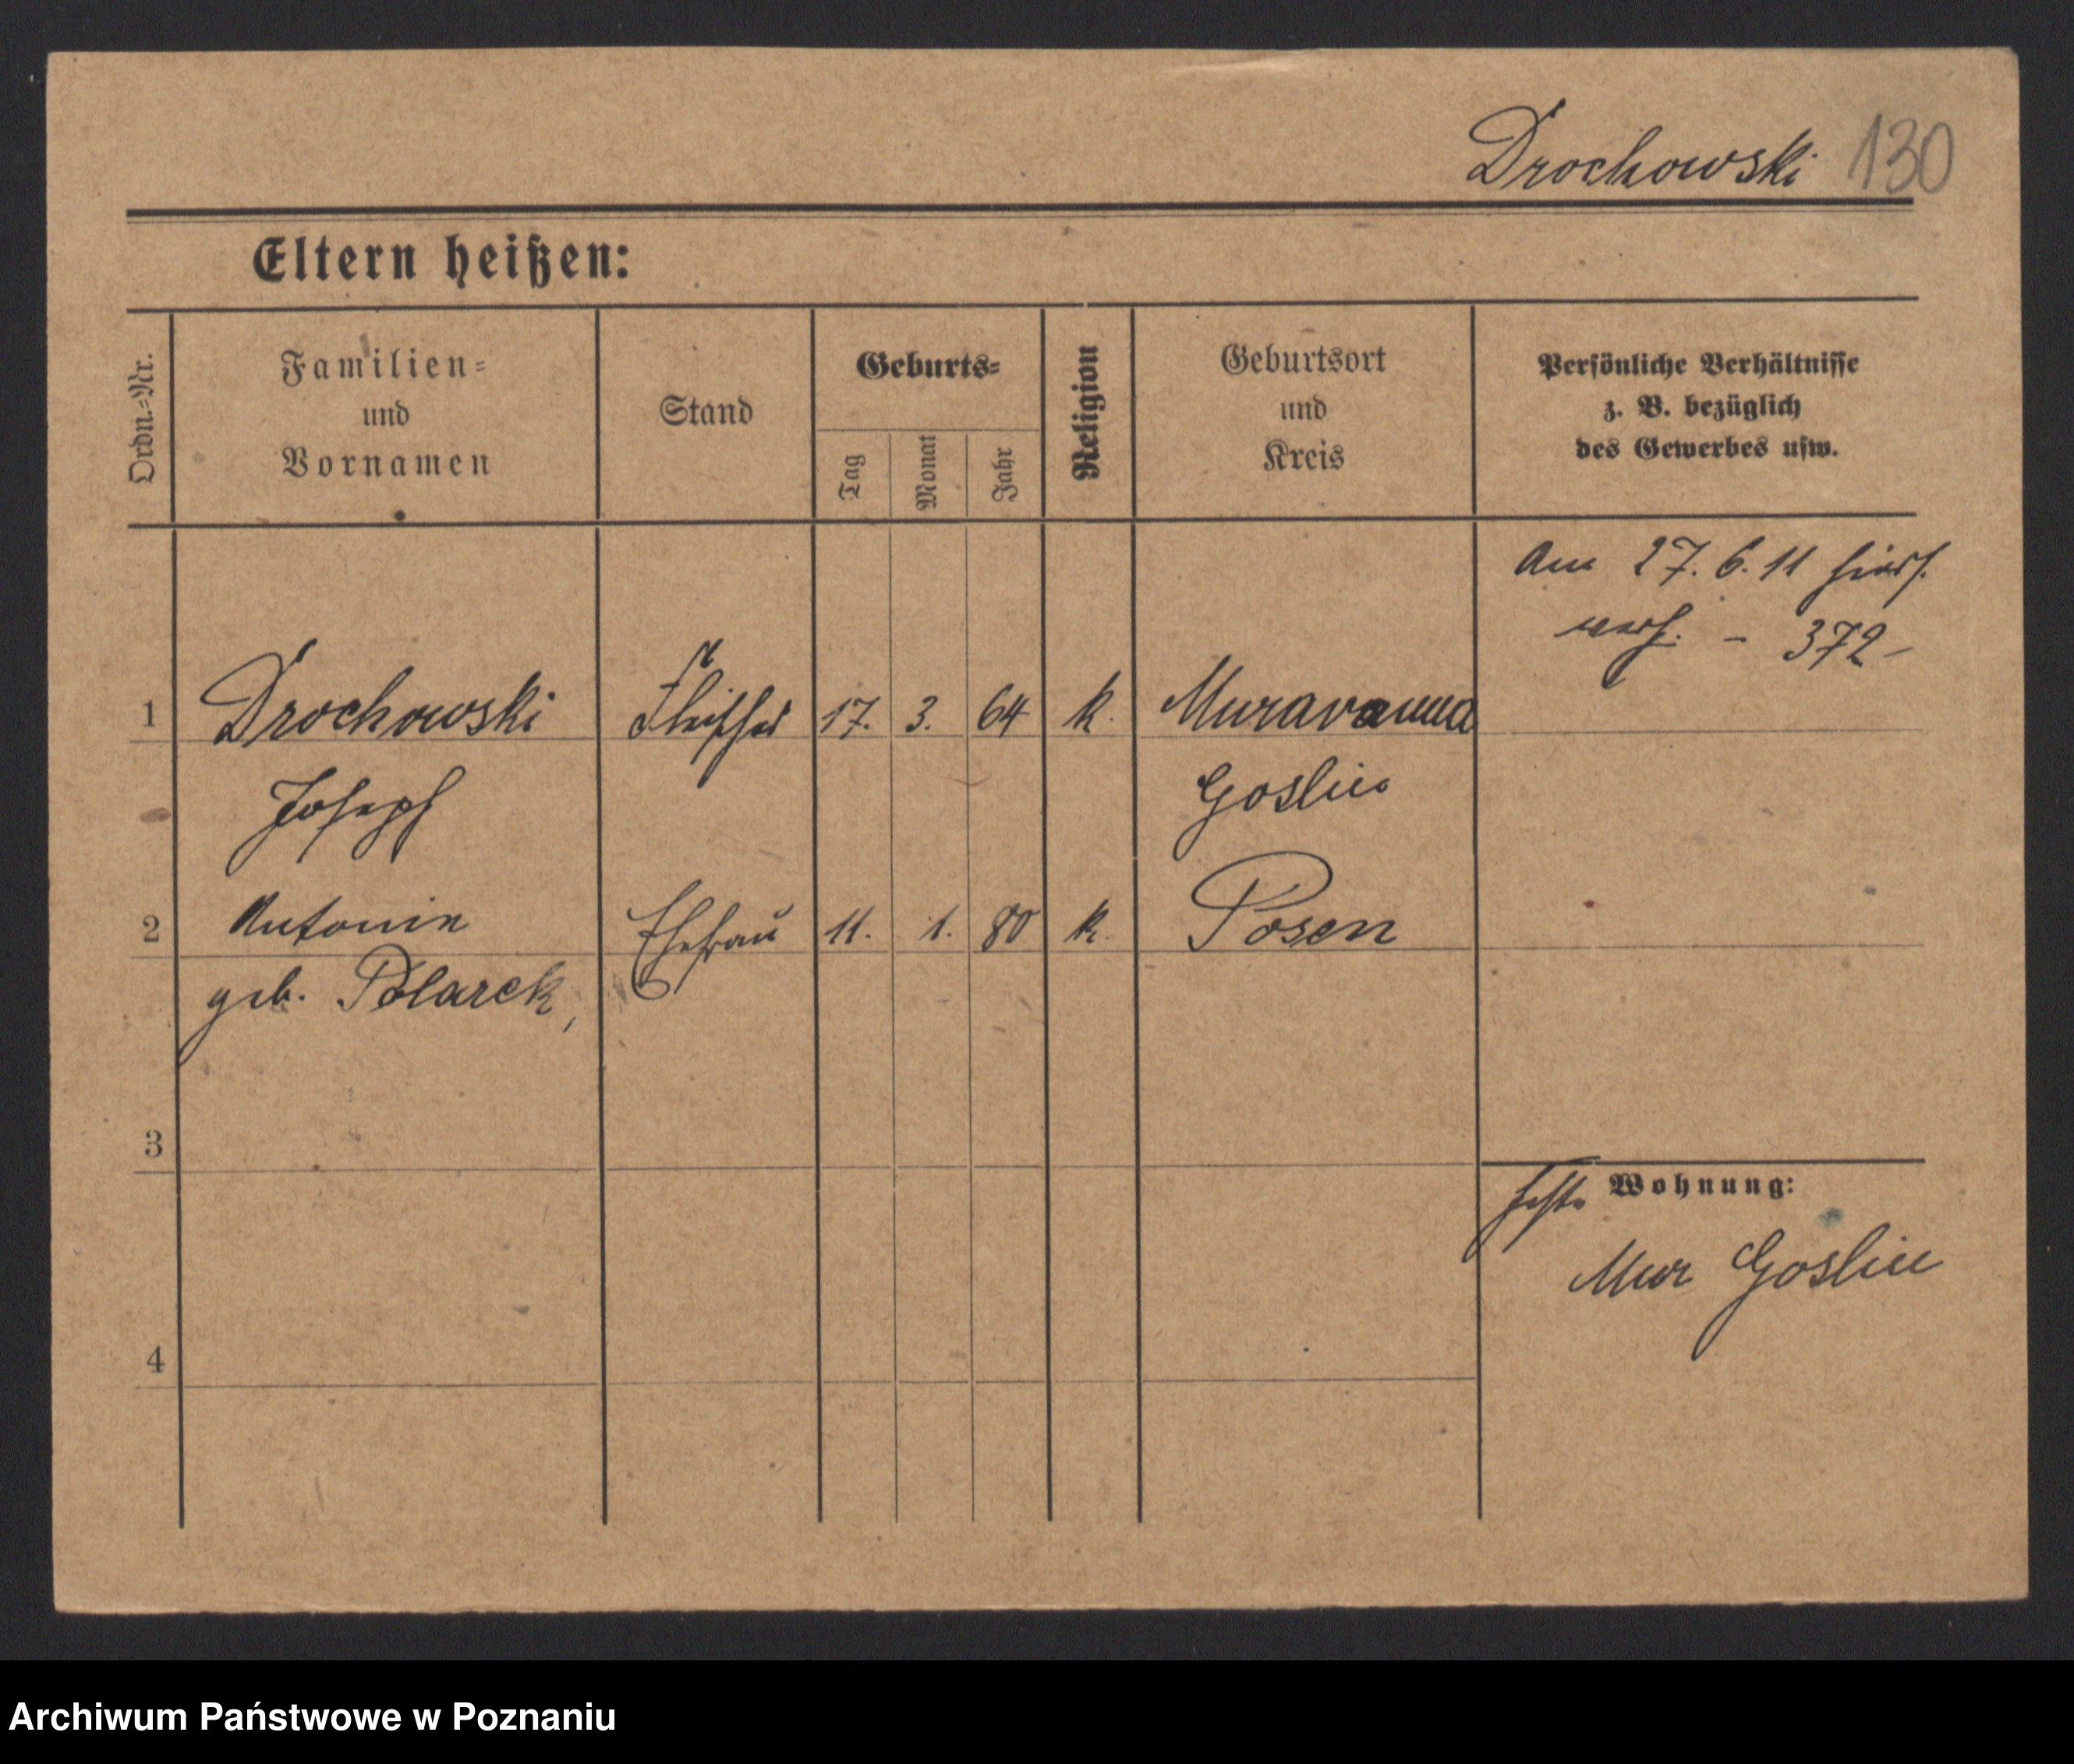 Drochowski 130
Eltern heißen:
Ordn.=Nr.
Familien=
und
Vornamen
Stand
Geburts=
Tag
Monat
Jahr
Religion
Geburtsort
und
Kreis
Persönliche Verhältnisse
z. B. bezüglich
des Gewerbes usw.
Am 27. 6. 11
- 372 -
1 Drochowski Fleischer 17. 3. 64 k. Murawanna
Joseph Goslin
2 Antonin Ehefrau 11. 1. 80 k. Posen
geb. Polarek,
3
feste Wohnung:
Mur Goslin
4
Archiwum Państwowe w Poznaniu